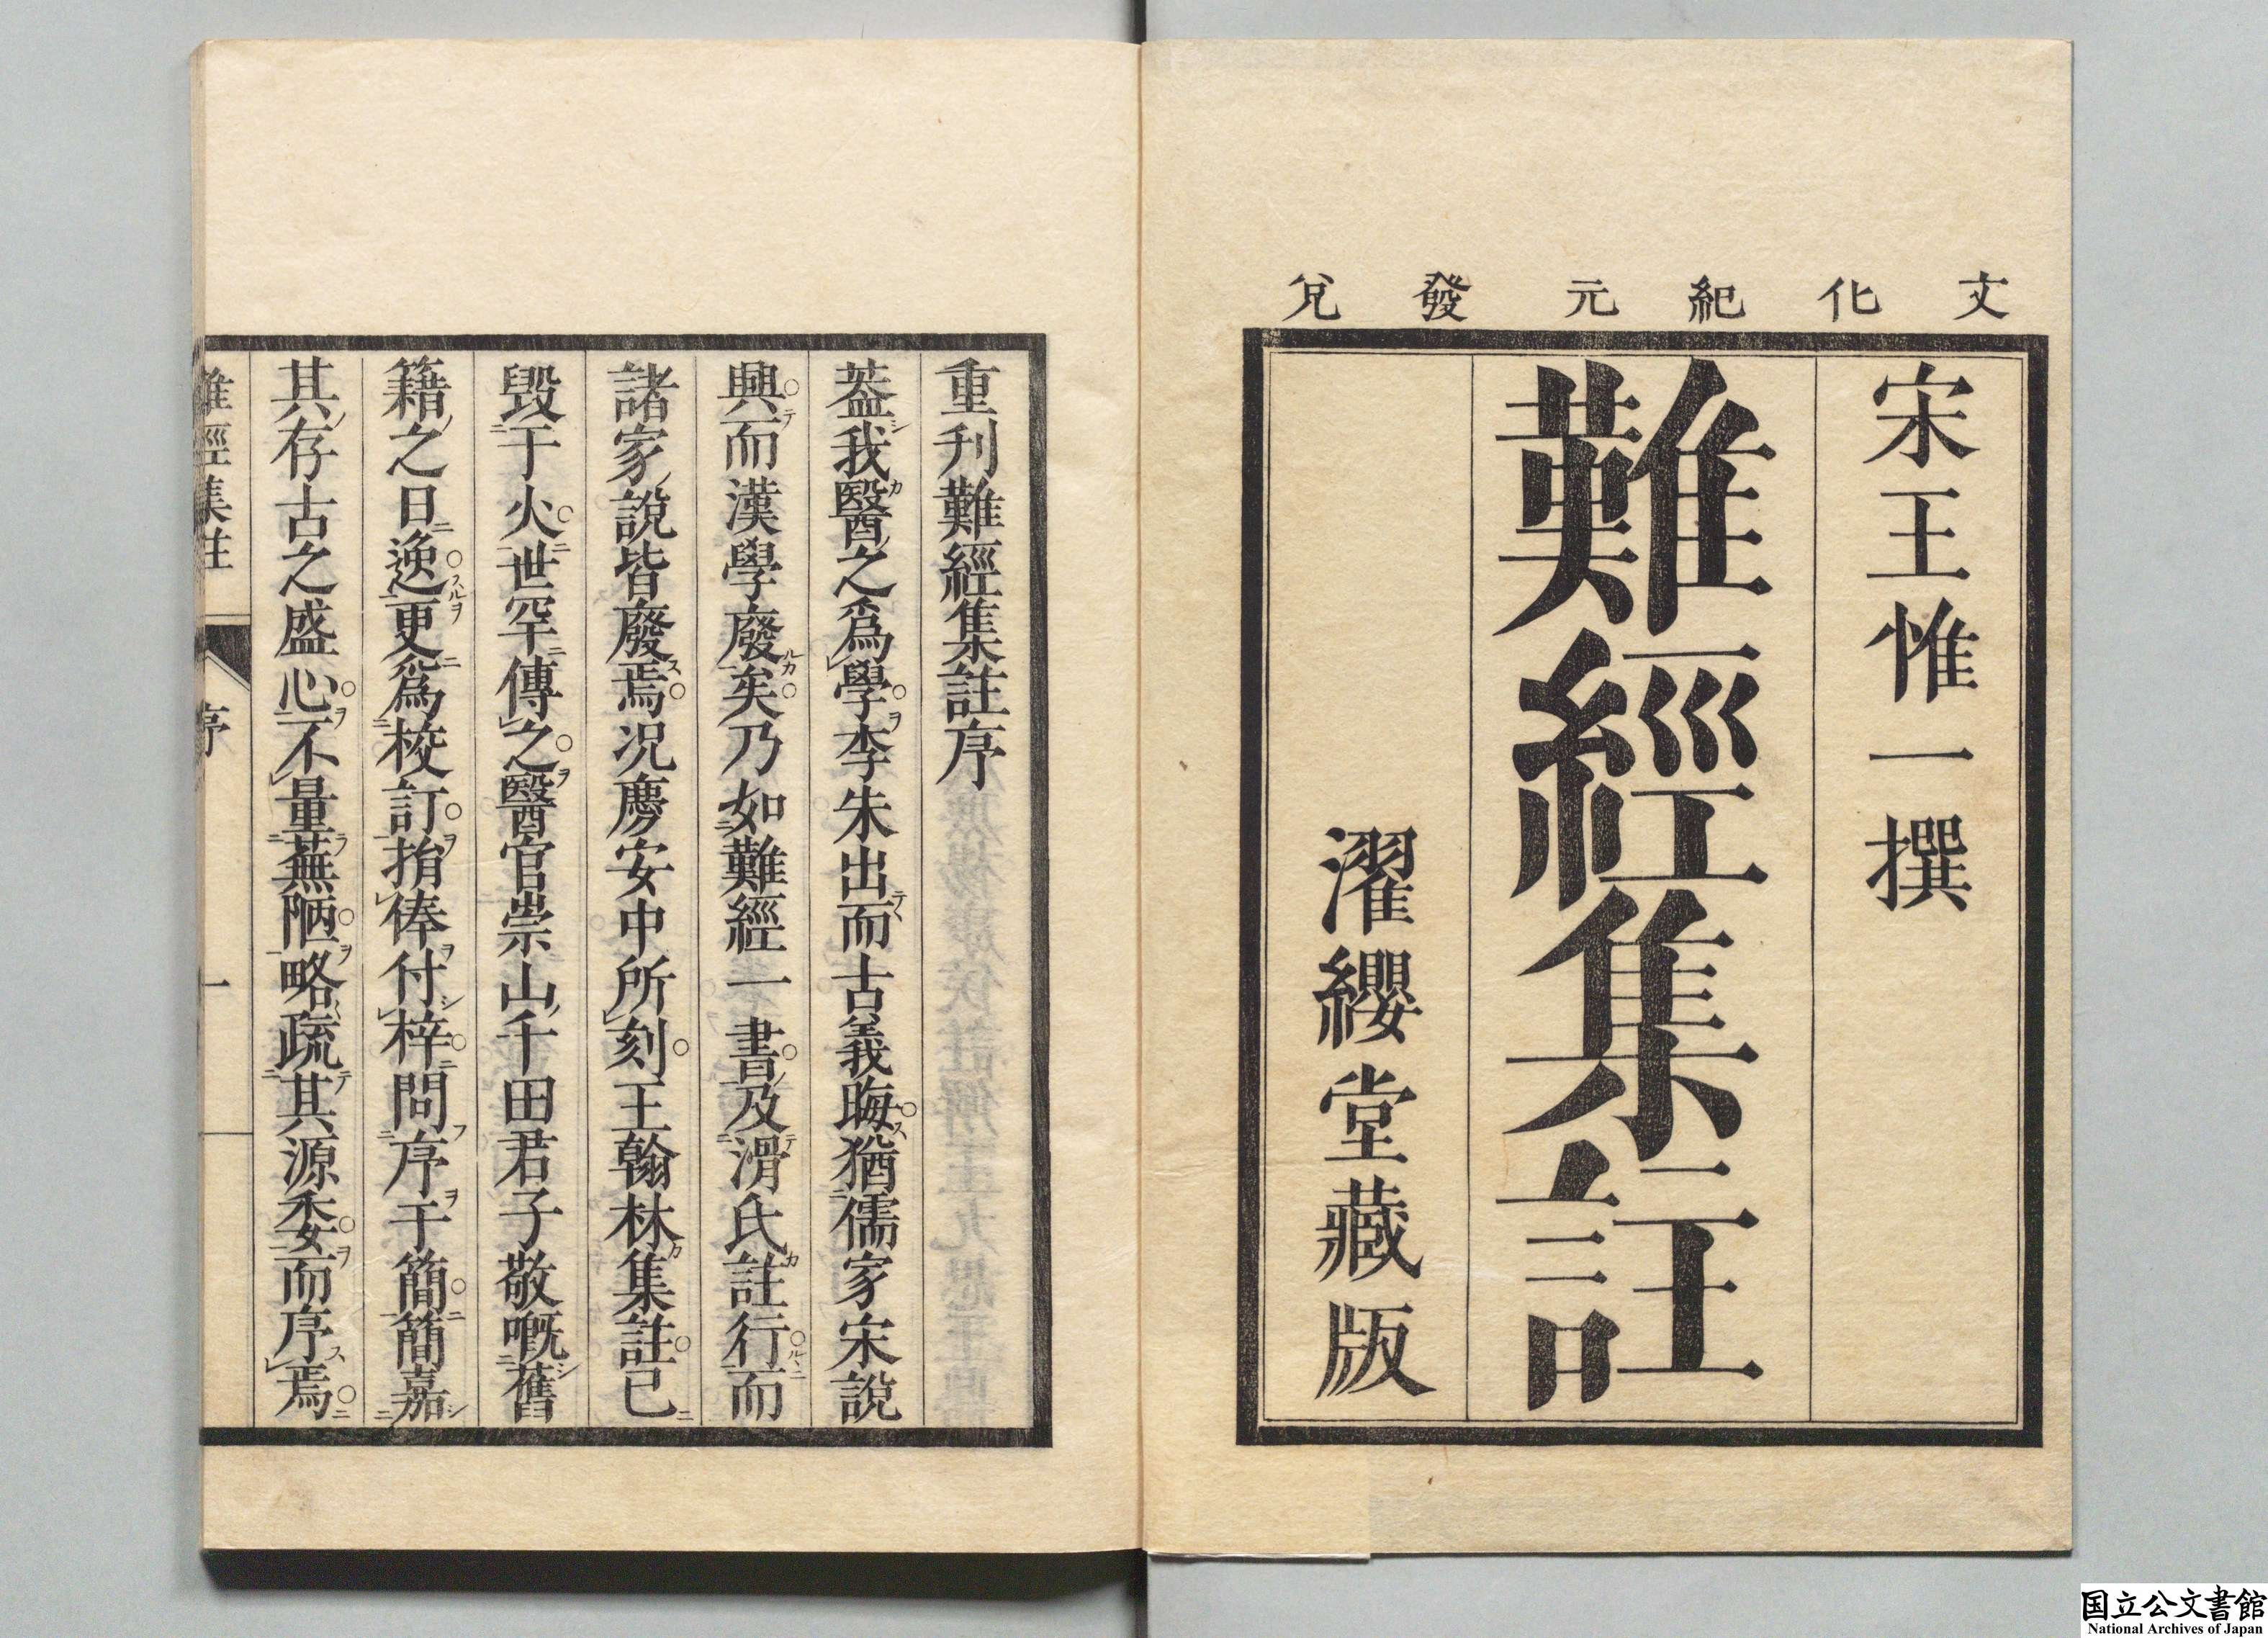 文化紀元發兌
宋王惟一撰
難經集註
濯纓堂藏版
重刋難經集註序
蓋我醫之爲學李朱出而古義晦猶儒家宋說
興而漢學廢矣乃如難經一書及滑氏註行而
諸家說皆廢焉况慶安中所刻王翰林集註已
毀于火世罕傳之醫官崇山千田君子敬嘅舊
籍之日逸更爲校訂捐俸付梓問序于簡簡嘉
其存古之盛心不量蕪陋略疏其源委而序焉
難經集註 序 一
国立公文書館
National Archives of Japan